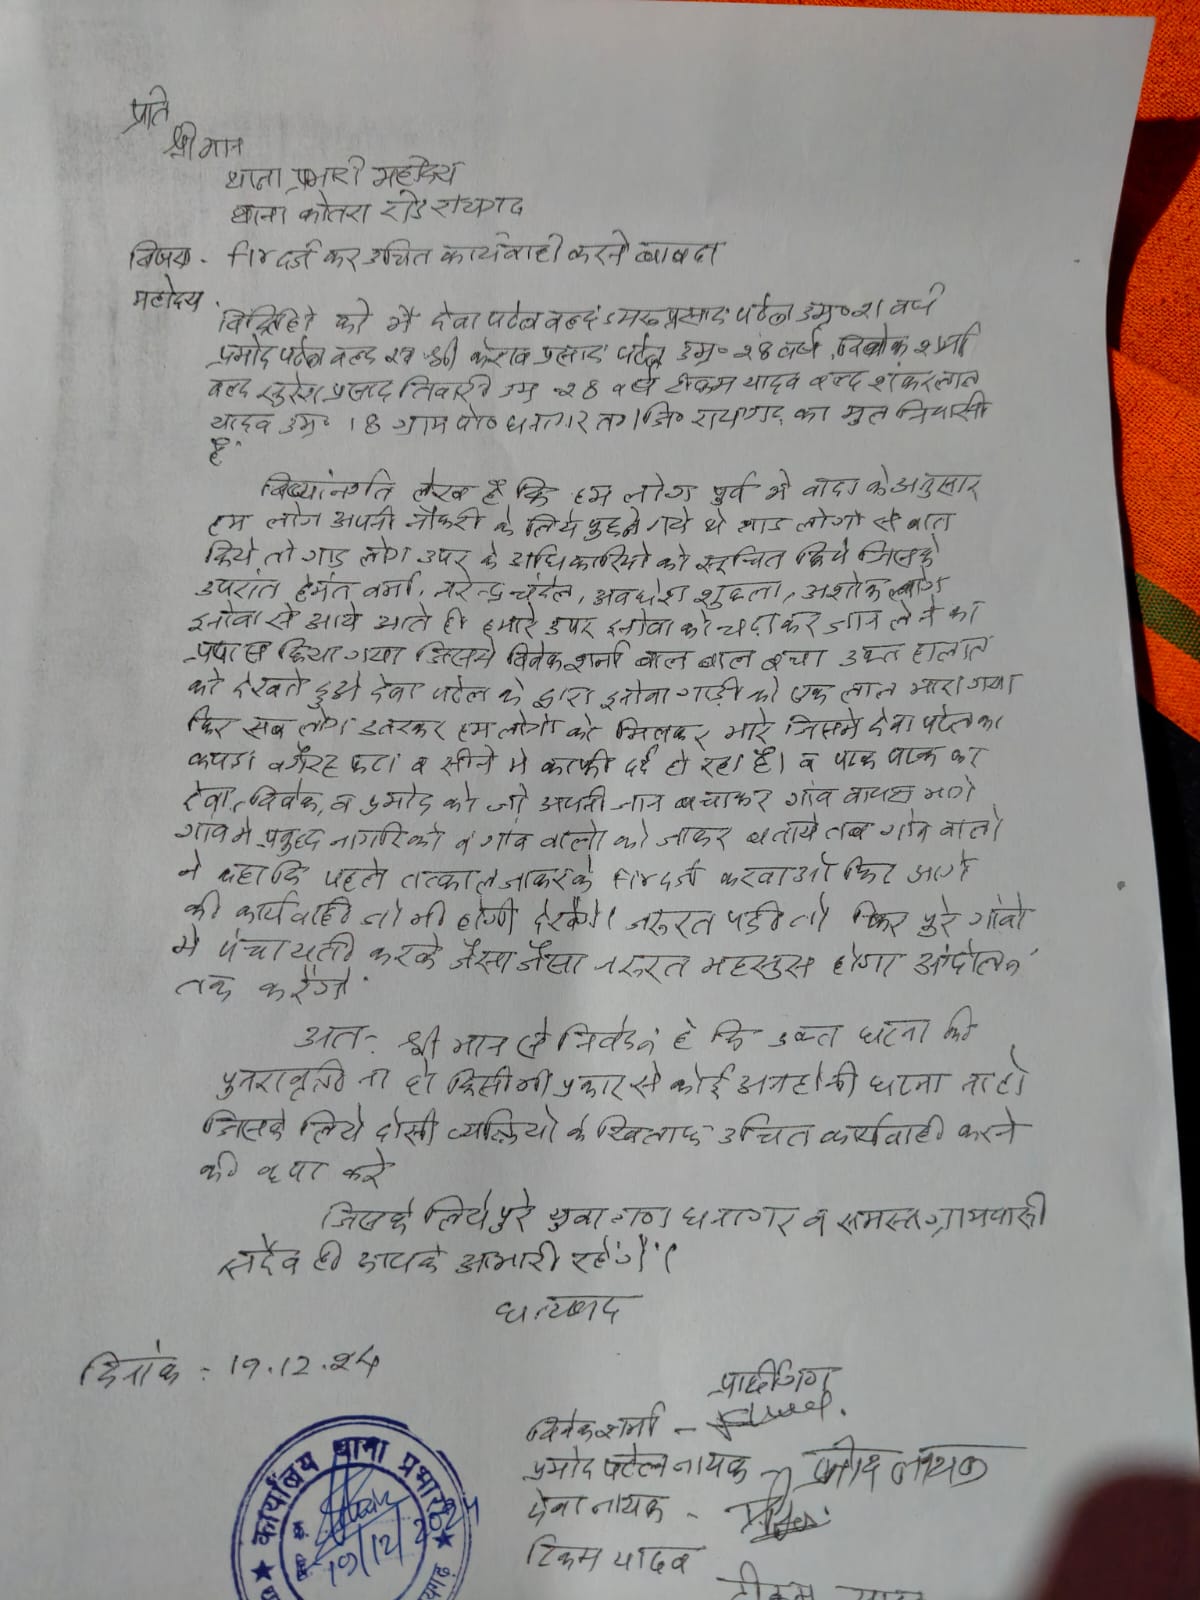 प्रति
श्रीमान
थाना प्रभारी महोदय
थाना कोतरा रोड रायगढ
विषय - FIR दर्ज कर उचित कार्यवाही करने बाबद।
महोदय,
की मै देवा पटेल वल्द डमरू प्रसाद पटेल उम्र० २१ वर्ष
प्रमोद पटेल वल्द स्व श्री केशव प्रसाद पटेल उम्र० २८ वर्ष, विवेक शर्मा
वल्द सुरेश प्रसाद तिवारी उम्र २८ वर्ष टीकम यादव वल्द शंकरलाल
यादव उम्र० 18 ग्राम पो० धनागर त० जि० रायगढ का मुल निवासी
हैं
लेख है कि हम लोग पुर्व मे वादा के अनुसार
हम लोग अपनी नौकरी के लिये पुछने गये थे गाड लोगो से बात
किये तो गाड लोग उपर के अधिकारियो को सूचित किये जिसके
उपरांत हेमंत वर्मा, नरेन्द्र चंदेल, अवधेश शुक्ला, अशोक
इनोवा से आये आते ही हमारे उपर इनोवा को चढ़ाकर जान लेने का
प्रयास किया गया जिसमे विवेक शर्मा बाल बाल बचा उक्त हालात
को देखते हुओ देवा पटेल के द्वारा इनोवा गाड़ी को एक लात मारा गया
फिर सब लोग उतरकर हम लोगो को मिलकर मारे जिसमे देवा पटेल का
कपडा वगैरह फटा व सीने मे काफी दर्द हो रहा है। व
देवा, विवेक, व प्रमोद को जो अपनी जान बचाकर गांव वापस भागे
गांव मे प्रबुद्ध नागरिको व गांव वालो को जाकर बताये तब गांव वालो
ने कहा कि पहले तत्काल जाकर के FIR दर्ज करवाओ फिर आगे
की कार्यवाही जो भी होगी देखेंगे। जरूरत पडी तो फिर पुरे गांवो
मे पंचायती करके जैसा जैसा जरूरत महसुस होगा आंदोलन
तक करेंगे
अतः श्री मान से निवेदन है कि उक्त घटना की
पुनरावृती ना हो किसी भी प्रकार से कोई अनहोनी घटना ना हो
जिसके लिये दोसी व्यक्तियो के खिलाफ उचित कार्यवाही करने
की कृपा करे
जिसके लिये पुरे युवा गण धनागर व समस्त ग्रामवासी
सदैव ही आपके आभारी रहेंगें।
धन्यवाद
दिनांक - 19.12.24
प्रार्थीगण
विवेक शर्मा -
प्रमोद पटेल नायक - प्रमोद नायक
देवा नायक -
टिकम यादव
टीकम यादव
कार्यालय थाना प्रभारी
19/12/2024